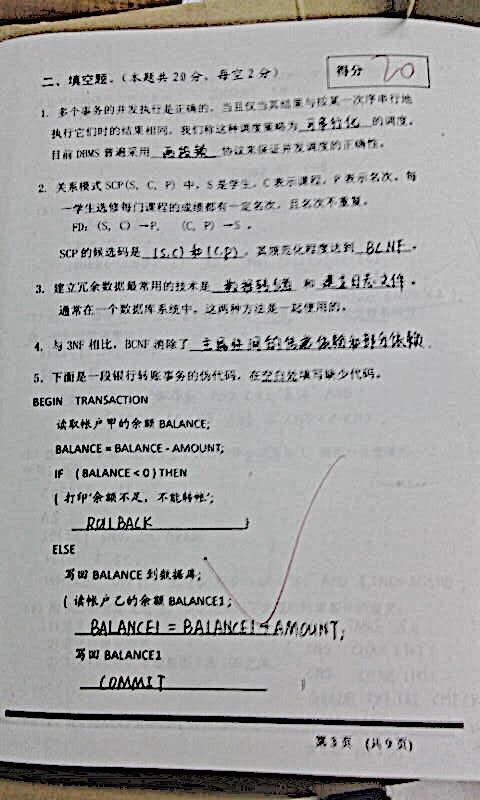 二、填空题。（本题共20分，每空2分）
得分 20
1. 多个事务的并发执行是正确的，当且仅当其结果与按某一次序串行地
执行它们时的结果相同。我们称这种调度策略为 可串行化 的调度。
目前 DBMS 普遍采用 两段锁 协议来保证并发调度的正确性。
2. 关系模式 SCP(S, C, P) 中，S 是学生，C 表示课程，P 表示名次，每
一学生选修每门课程的成绩都有一定名次，且名次不重复。
FD：(S, C) →P， (C, P) →S 。
SCP 的候选码是 (S,C) 和 (C,P) ，其规范化程度达到 BCNF 。
3. 建立冗余数据最常用的技术是 数据转储 和 建立日志文件 。
通常在一个数据库系统中，这两种方法是一起使用的。
4. 与 3NF 相比，BCNF 消除了 主属性间的传递依赖和部分依赖
5. 下面是一段银行转账事务的伪代码，在空白处填写缺少代码。
BEGIN TRANSACTION
读取帐户甲的余额 BALANCE;
BALANCE = BALANCE - AMOUNT;
IF （BALANCE < 0）THEN
{ 打印'余额不足，不能转帐';
ROLLBACK }
ELSE
写回 BALANCE 到数据库;
{ 读帐户乙的余额 BALANCE1;
BALANCE1 = BALANCE1 + AMOUNT;
写回 BALANCE1
COMMIT }
第 3 页 （共 9 页）